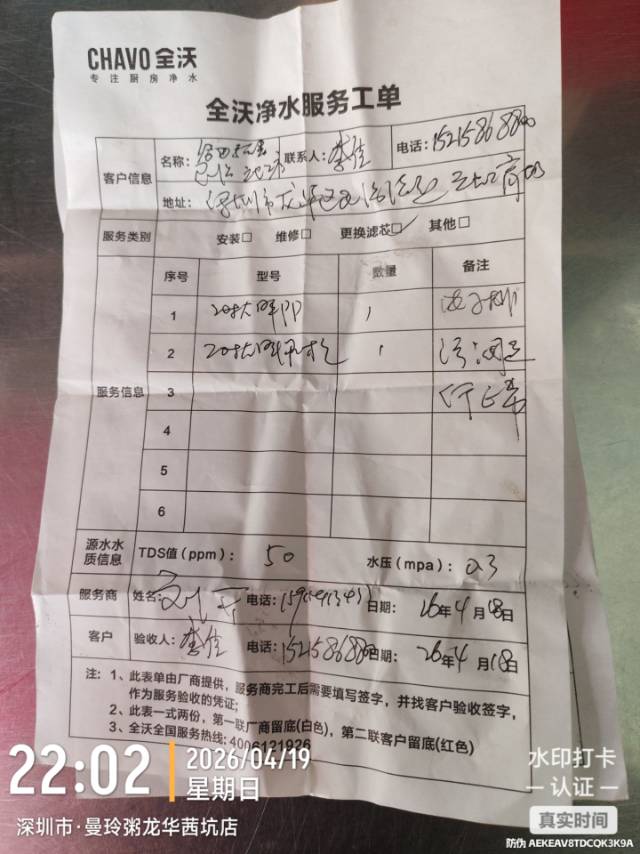 CHAVO 全沃
专注厨房净水
全沃净水服务工单
客户信息 名称： 联系人：李佳 电话：
地址：深圳市龙华区
服务类别 安装□ 维修□ 更换滤芯☑ 其他□
服务信息 序号 型号 数量 备注
1 20寸大 1
2 20寸大 1
3
4
5
6
源水水质信息 TDS值（ppm）：50 水压（mpa）：0.3
服务商 姓名： 电话： 日期：26年4月18日
客户 验收人：李佳 电话： 日期：26年4月18日
注：1、此表单由厂商提供，服务商完工后需要填写签字，并找客户验收签字，
作为服务验收的凭证；
2、此表一式两份，第一联厂商留底(白色)，第二联客户留底(红色)
3、全沃全国服务热线：4006121926
22:02 2026/04/19
星期日
深圳市·曼玲粥龙华茜坑店
水印打卡
认证
真实时间
防伪 AEKEAV8TDCQK3K9A